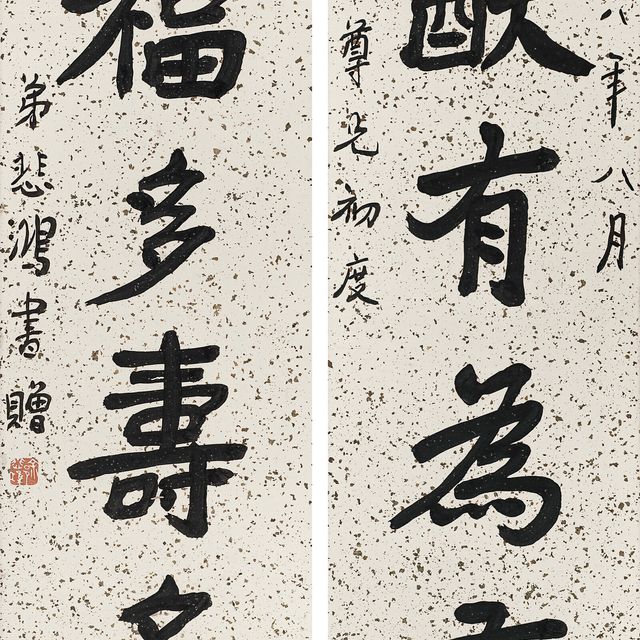 八年八月
猷有為
尊兄初度
福多壽
弟悲鴻書贈